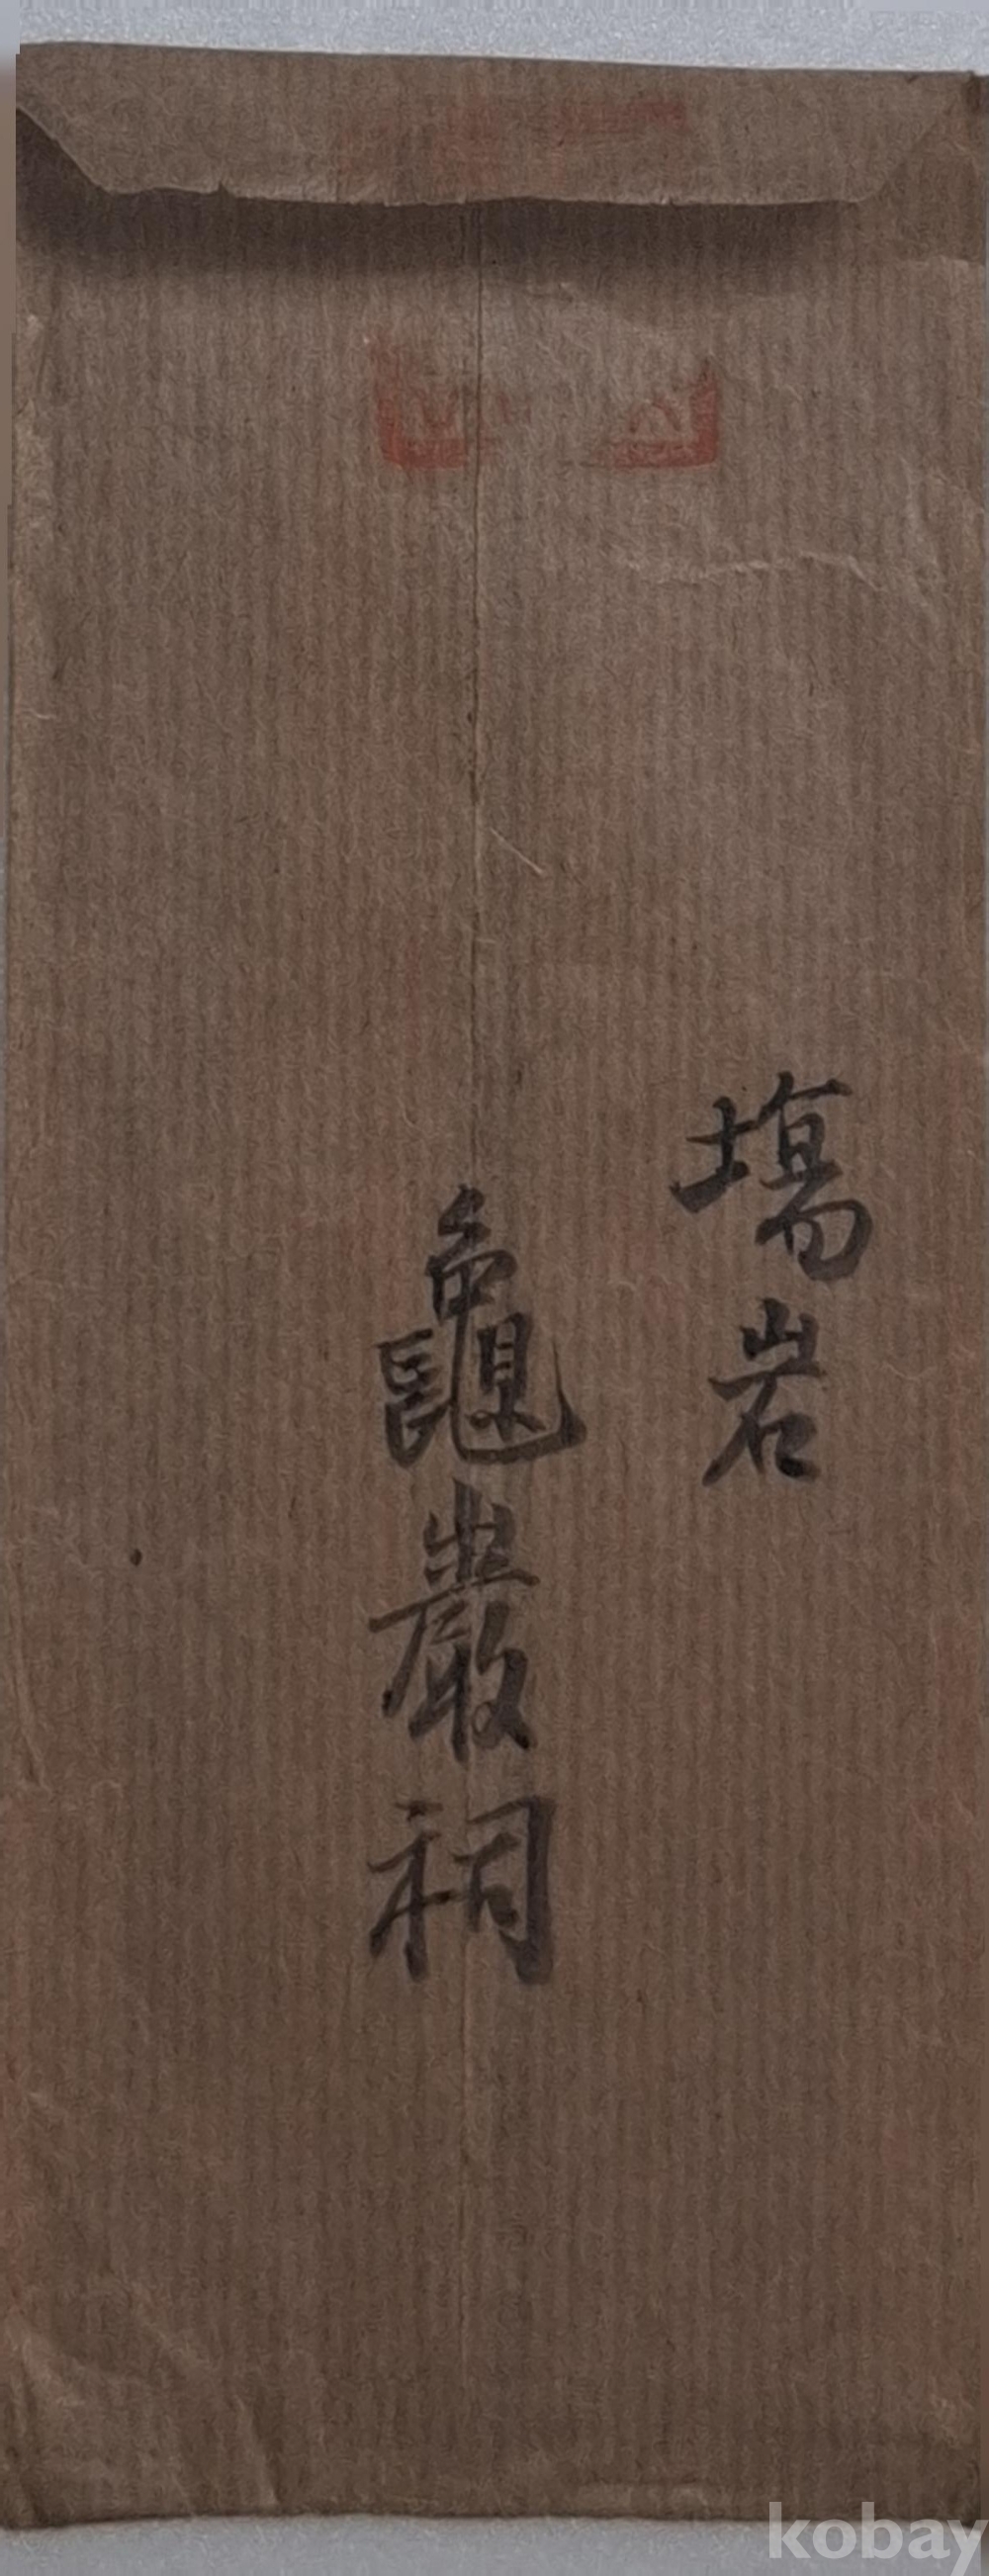 塲岩
龜巖祠
kobay